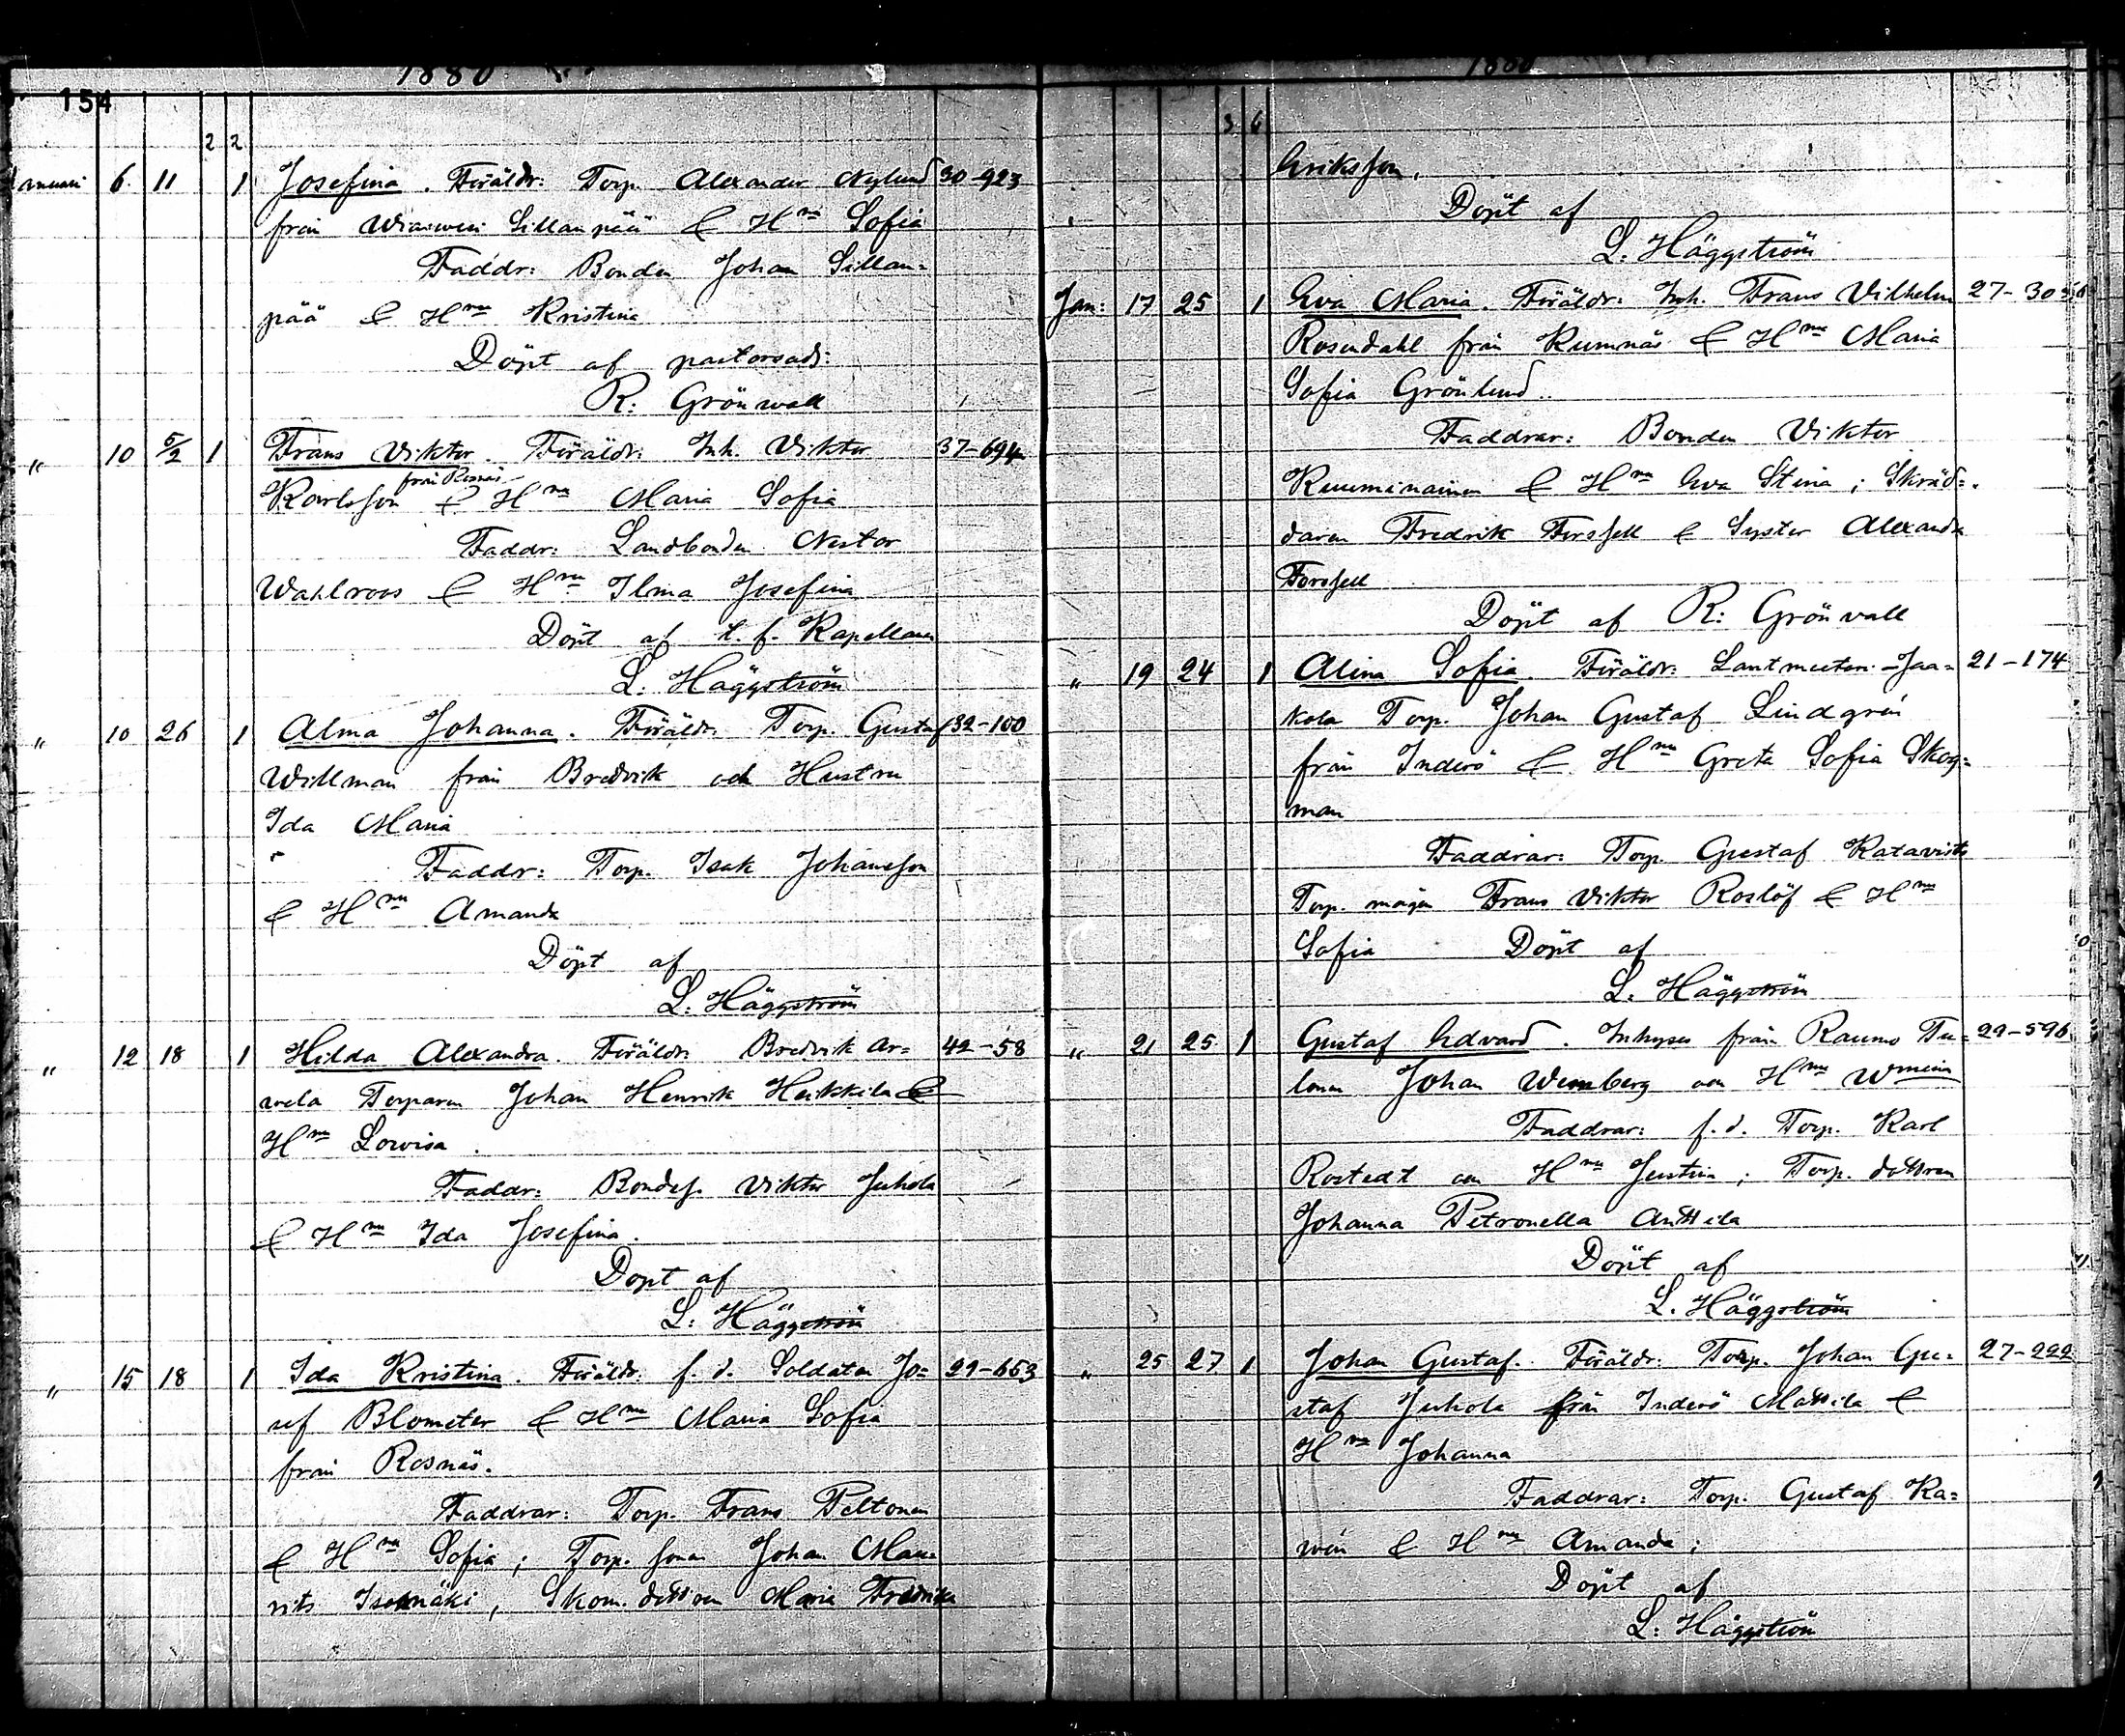 1880
154
2 2
6 11 1 Josefina. Föräldr: Torp. Alexander Nylund 30-923
från Sillanpää & Hru Sofia
Faddr: Bonden Johan Sillan=
pää & Hru Kristina
Döpt af pastorsadj:
R: Grönwall
" 10 5/2 1 Frans Viktor. Föräldr: Inh. Viktor 37-694
från Rosnäs
Karlsson & Hru Maria Sofia
Faddr: Landbonden Nestor
Wahlroos & Hru Ilma Josefina
Döpt af t. f. Kapellanen
L. Häggström
" 10 26 1 Alma Johanna. Föräldr: Torp. Gustaf 32-100
Willman från Bredvik och Hustru
Ida Maria
Faddr: Torp. Isak Johansson
& Hru Amanda
Döpt af
L. Häggström
" 12 18 1 Hilda Alexandra. Föräldr: Bredvik Ar= 42-58
vela Torparen Johan Henrik Heikkilä &
Hru Lovisa.
Faddr: Bondes. Viktor Juhola
& Hru Ida Josefina.
Döpt af
L. Häggström
" 15 18 1 Ida Kristina. Föräldr: f. d. Soldaten Jo= 29-653
sef Blomster & Hru Maria Sofia
från Rosnäs.
Faddrar: Torp. Frans Peltonen
& Hru Sofia; Torp. sonen Johan Mau=
rits Isomäki, Skom. dottren Maria Fredrika
1880
3 6
Eriksson.
Döpt af
L. Häggström
Jan: 17 25 1 Eva Maria. Föräldr: Inh. Frans Vilhelm 27-30
Rosendahl från Rumnäs & Hru Maria
Sofia Grönlund.
Faddrar: Bonden Viktor
Kuuminainen & Hru Eva Stina; Skräd=
daren Fredrik Forssell & Syster Alexandra
Forssell
Döpt af R: Grönvall
" 19 24 1 Alina Sofia. Föräldr: Lantmeteri-Jaa= 21-174
kola Torp. Johan Gustaf Lindgrén
från Inderö & Hru Greta Sofia Skog=
man
Faddrar: Torp. Gustaf Katavisto
Torp. mågen Frans Viktor Roslöf & Hru
Sofia Döpt af
L. Häggström
" 21 25 1 Gustaf Edvard. Inhyses från Raumo Tu= 29-596
Johan Wennberg och Hru
Faddrar: f. d. Torp. Karl
Rostedt och Hru Justina; Torp. dottren
Johanna Petronella Anttila
Döpt af
L. Häggström
" 25 27 1 Johan Gustaf. Föräldr: Torp. Johan Gu= 27-222
staf Juhola från Inderö Mattila &
Hru Johanna
Faddrar: Torp. Gustaf Ka=
wén & Hru Amanda;
Döpt af
L. Häggström